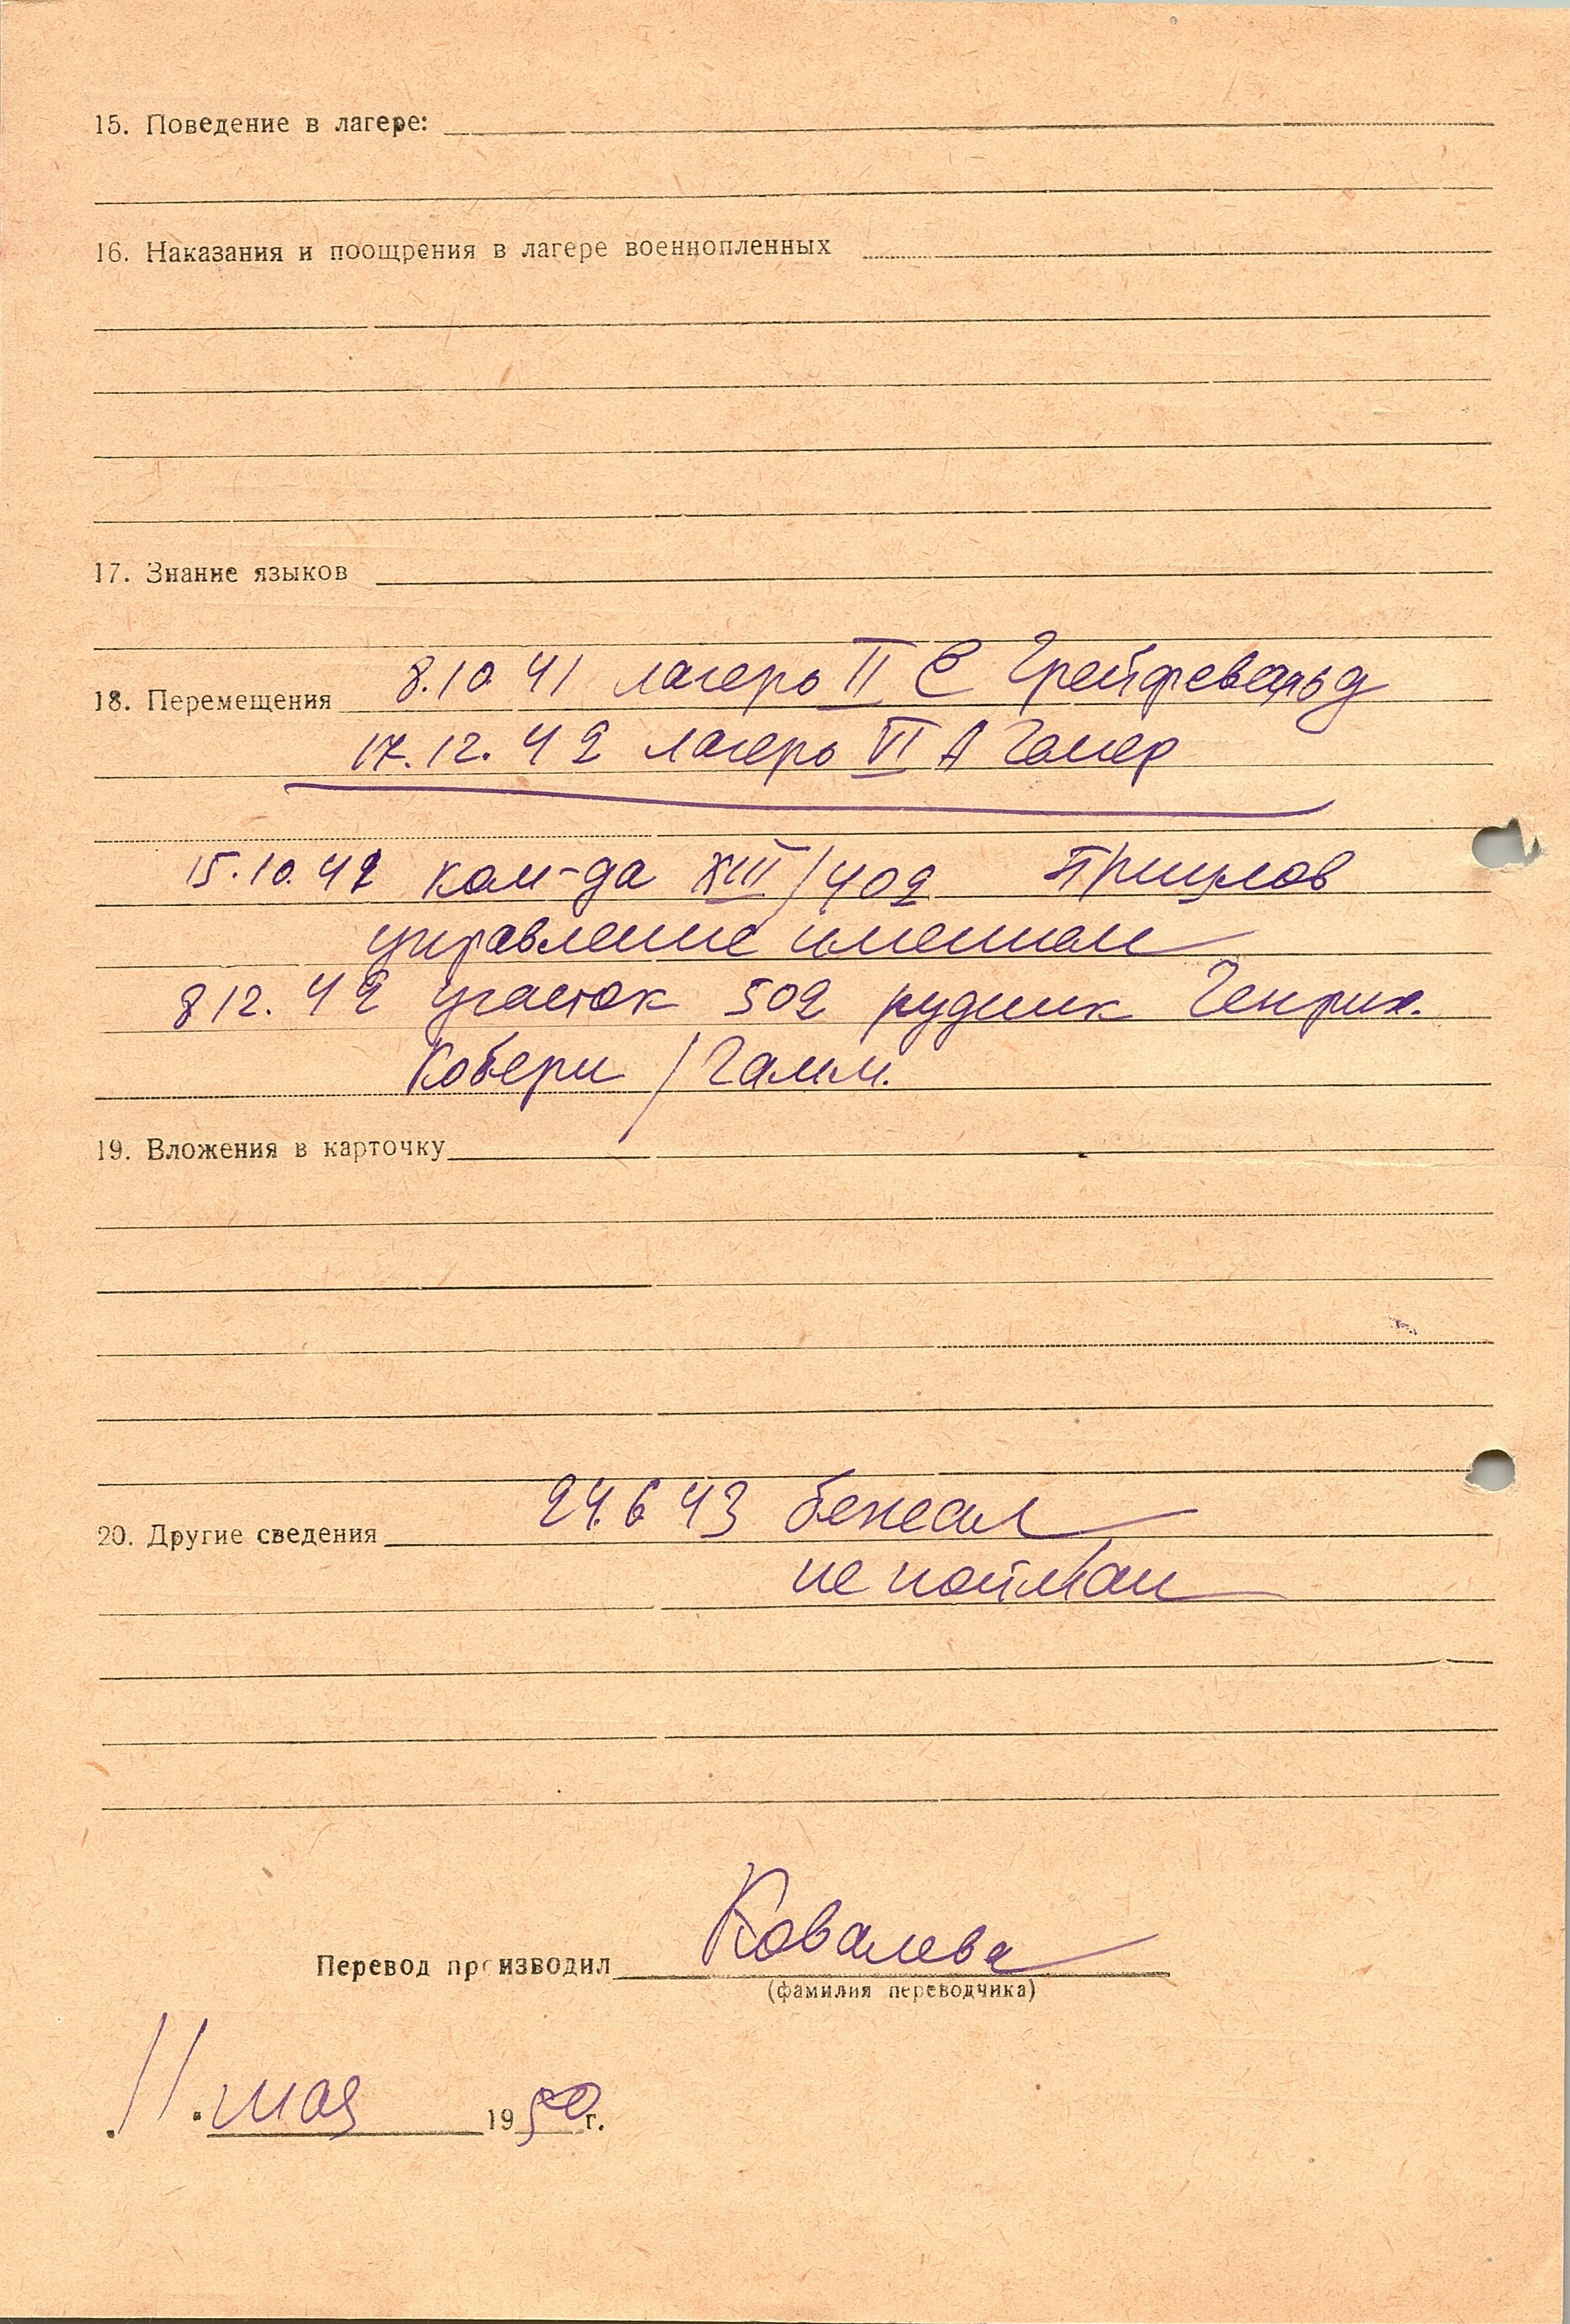 15. Поведение в лагере:
16. Наказания и поощрения в лагере военнопленных
17. Знание языков
18. Перемещения 8.10 41 лагерь II С Грейфевальд
17.12.42 лагерь VI А Гемер
15.10.42 ком-да XIII/402
управление имением
8 12.42 участок 502 рудник Генрих.
Роберт / Гамм.
19. Вложения в карточку
20. Другие сведения 24.6 43 бежал
не пойман
Перевод производил Ковалева
(фамилия переводчика)
11. мая 1950г.